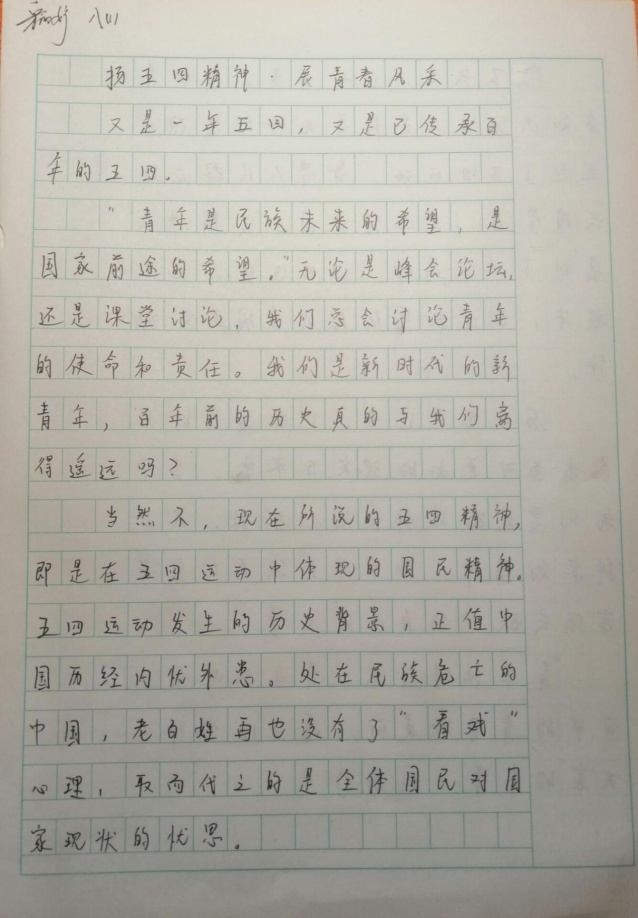 八(1)
扬五四精神·展青春风采
又是一年五四,又是已传承百
年的五四。
“青年是民族未来的希望,是
国家前途的希望。”无论是峰会论坛,
还是课堂讨论,我们总会讨论青年
的使命和责任。我们是新时代的新
青年,百年前的历史真的与我们离
得遥远吗?
当然不,现在所说的五四精神,
即是在五四运动中体现的国民精神。
五四运动发生的历史背景,正值中
国历经内忧外患。处在民族危亡的
中国,老百姓再也没有了“看戏”
心理,取而代之的是全体国民对国
家现状的忧思。